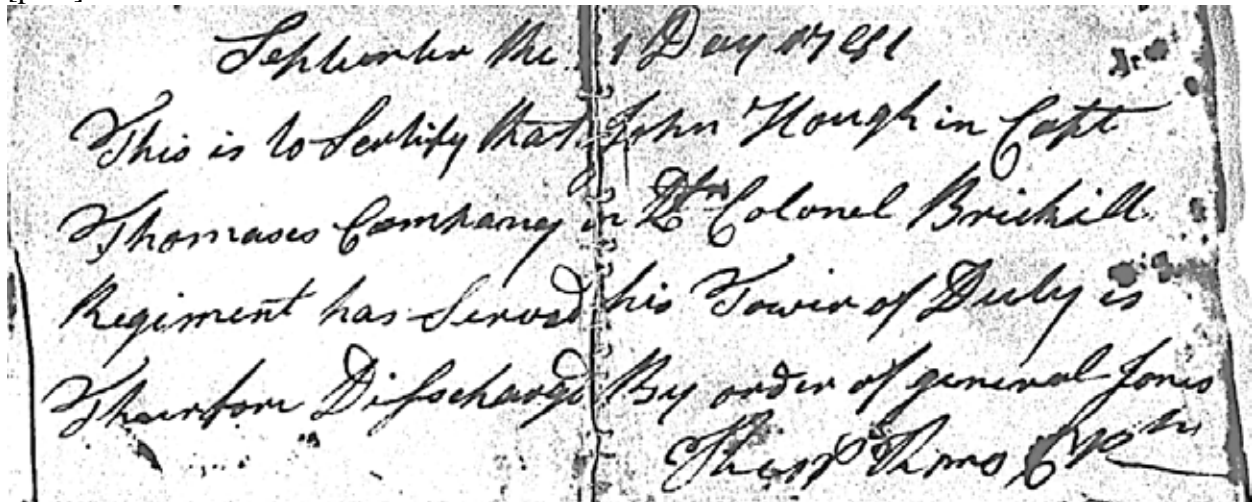 September the 1 Day 1781
This is to Sertify that John Hough in Capt
Thomases Company in Lt Colonel Brickill
Regiment has Served his Tower of Duty is
Thairfore Disscharge By order of general Jones